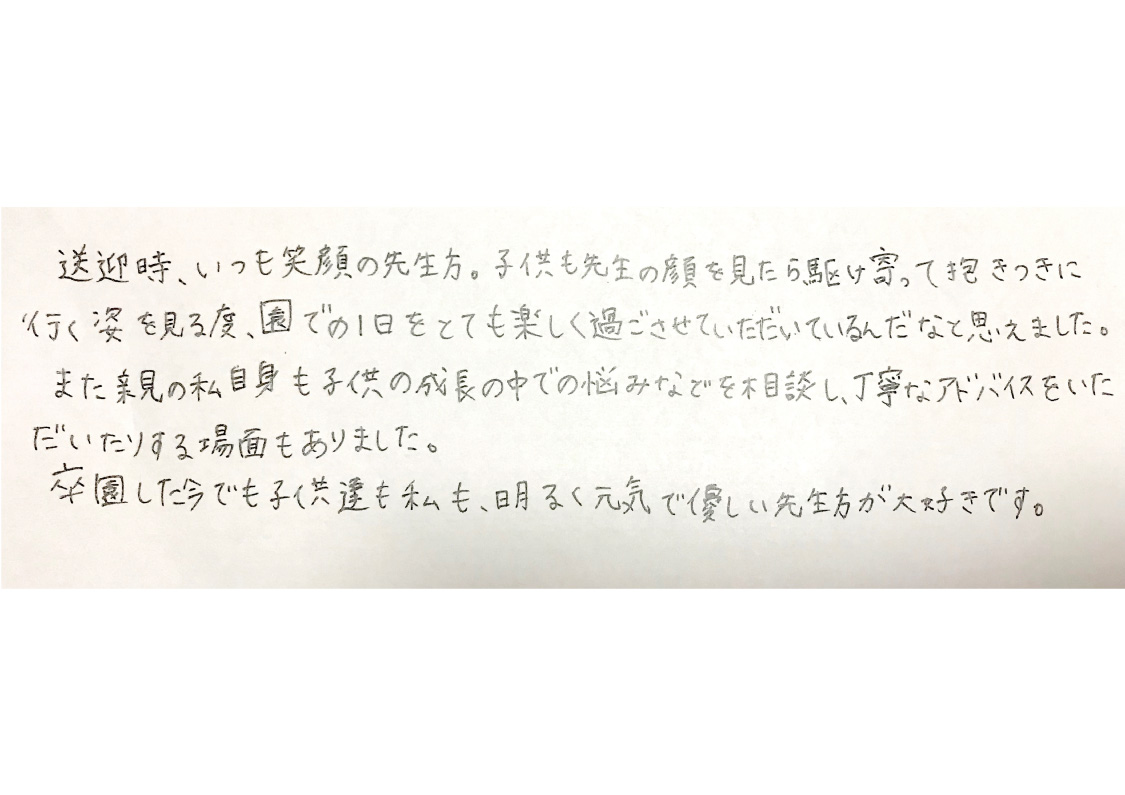 送迎時、いつも笑顔の先生方。子供も先生の顔を見たら駆け寄って抱きつきに
行く姿を見る度、園での1日をとても楽しく過ごさせていただいているんだなと思えました。
また親の私自身も子供の成長の中での悩みなどを相談し、丁寧なアドバイスをいた
だいたりする場面もありました。
卒園した今でも子供達も私も、明るく元気で優しい先生方が大好きです。